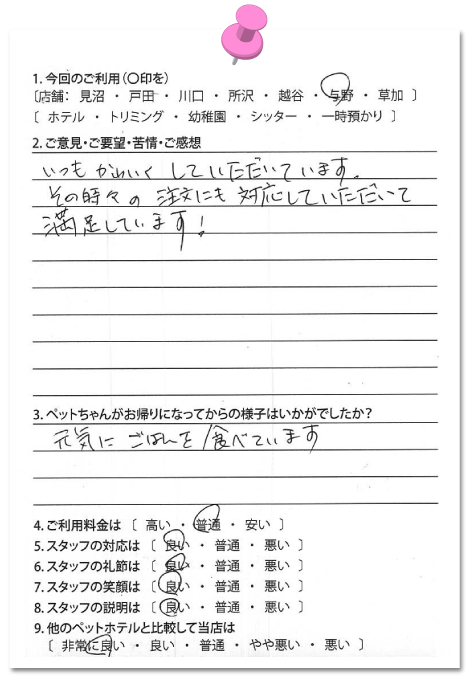 1. 今回のご利用(○印を)
〔店舗: 見沼 ・ 戸田 ・ 川口 ・ 所沢 ・ 越谷 ・ 与野 ・ 草加 〕
〔 ホテル ・ トリミング ・ 幼稚園 ・ シッター ・ 一時預かり 〕
2. ご意見・ご要望・苦情・ご感想
いつも かわいく していただいています。
その時々の 注文にも 対応していただいて
満足しています!
3. ペットちゃんがお帰りになってからの様子はいかがでしたか?
元気に ごはんを 食べています
4. ご利用料金は 〔 高い ・ 普通 ・ 安い 〕
5. スタッフの対応は 〔 良い ・ 普通 ・ 悪い 〕
6. スタッフの礼節は 〔 良い ・ 普通 ・ 悪い 〕
7. スタッフの笑顔は 〔 良い ・ 普通 ・ 悪い 〕
8. スタッフの説明は 〔 良い ・ 普通 ・ 悪い 〕
9. 他のペットホテルと比較して当店は
〔 非常に良い ・ 良い ・ 普通 ・ やや悪い ・ 悪い 〕